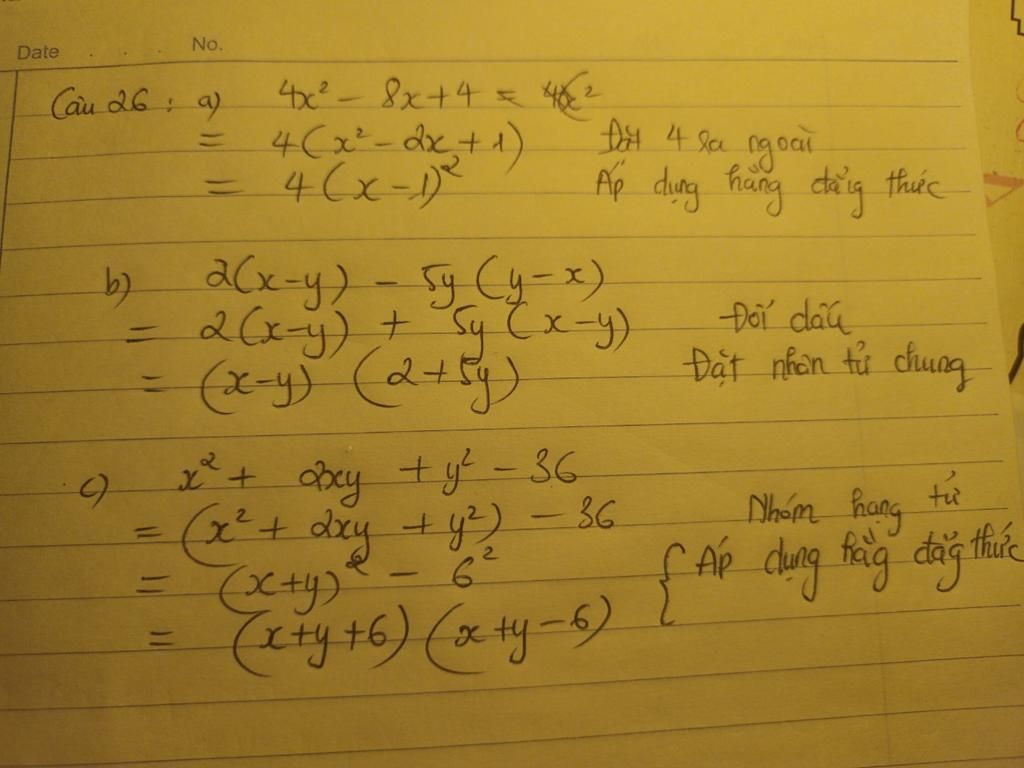 Date . . . No.
Câu 26 : a) 4x² - 8x + 4 =
= 4(x² - 2x + 1) 4 ra ngoài
= 4(x - 1)² Áp dụng hằng đẳng thức
b) 2(x-y) - 5y (y-x)
= 2(x-y) + 5y (x-y) Đổi dấu
= (x-y) (2+5y) Đặt nhân tử chung
c) x² + 2xy + y² - 36
= (x² + 2xy + y²) - 36 Nhóm hạng tử
= (x+y)² - 6² { Áp dụng hằg đẳg thức
= (x+y+6) (x+y-6)